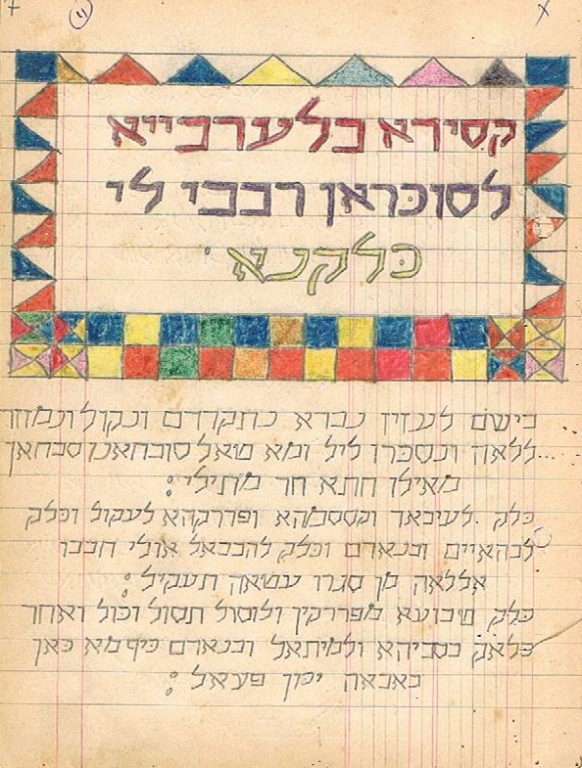 קסידא בלערבייא
לסוכראן רבבי לי
כלקנא
בישם לעזיז נברא בתקדדם ונקול ונמזור
ללאה ונסכרו ליל ומא טואל סובחאנו סבחאן
מאילו חתא חד מתילי :
כלק לעיבאד וקססמהא ופדרקהא לעקול וכלק
לבהאיים ובנאדם וכלק להבבאל אולי חבבו
אללאה מן סגרו עטאה תעקיל :
כלק טבועא מפררקין ולוסול תסול וכול ואחד
כלאק בסביהא ולמיתאל ובנאדם כיף מא כאן
באבאה יכון פעאל :